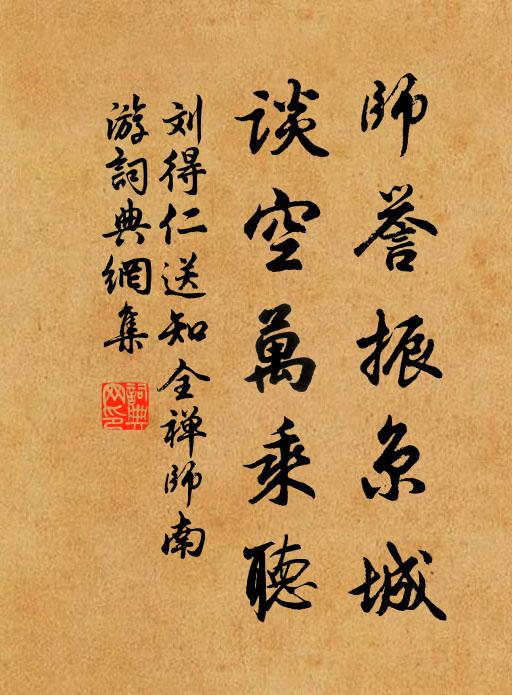 師譽振京城
談空萬乘聽
刘得仁送知全禅師南
游詞典網集
詞典
网印